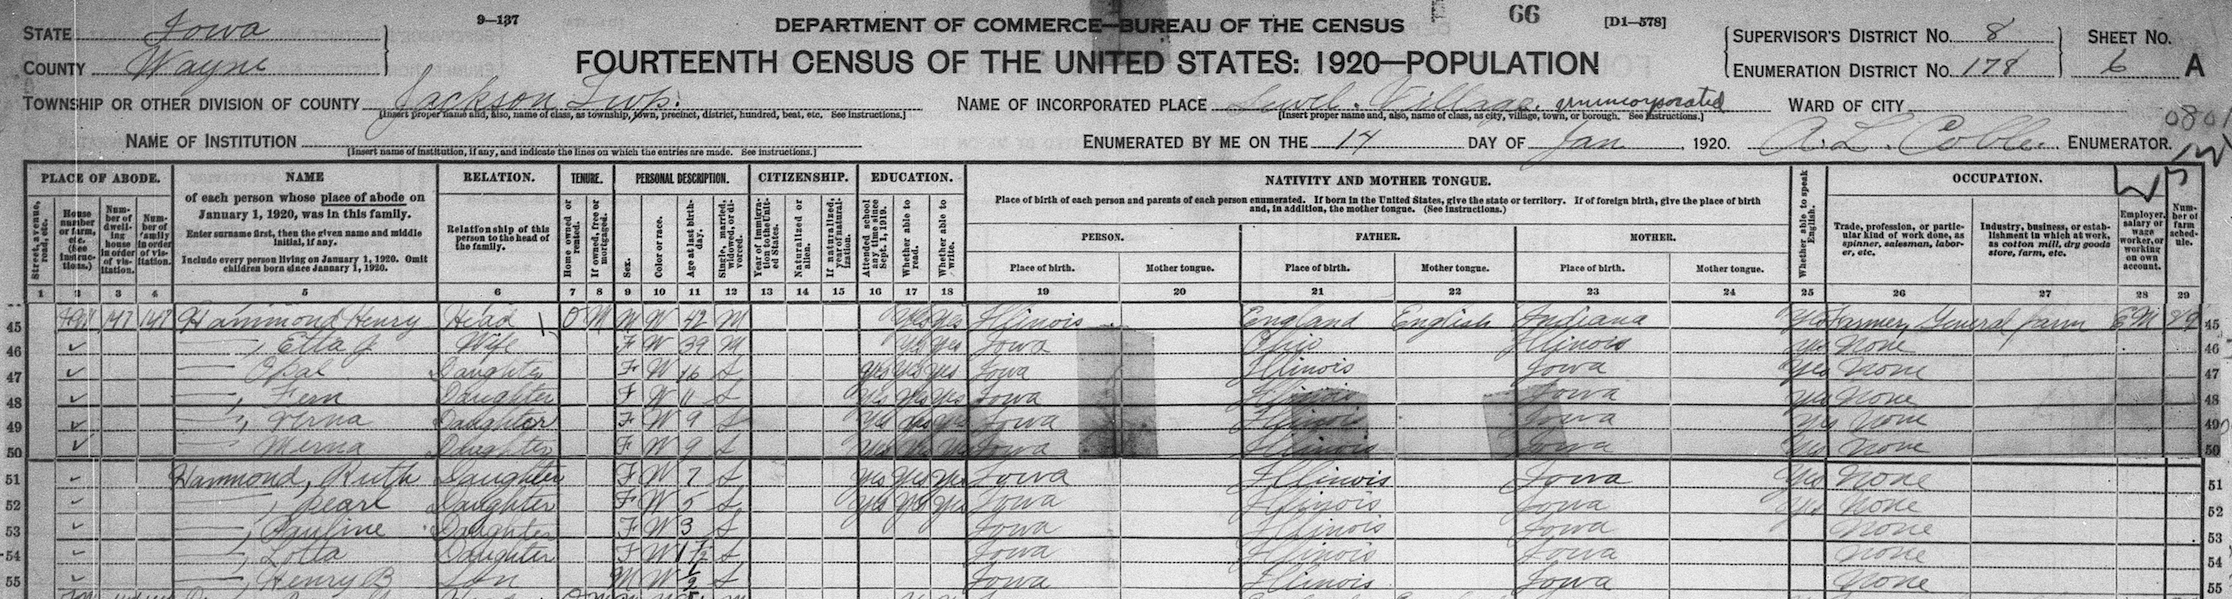 9—137
DEPARTMENT OF COMMERCE—BUREAU OF THE CENSUS
66
[D1—578]
STATE Iowa
FOURTEENTH CENSUS OF THE UNITED STATES: 1920—POPULATION
SUPERVISOR'S DISTRICT NO. 8
SHEET NO.
COUNTY Wayne
ENUMERATION DISTRICT NO. 178
6 A
TOWNSHIP OR OTHER DIVISION OF COUNTY Jackson Twp.
NAME OF INCORPORATED PLACE Sewel. Village. unincorporated
WARD OF CITY
[Insert proper name and, also, name of class, as township, town, precinct, district, hundred, beat, etc. See instructions.]
[Insert proper name and, also, name of class, as city, village, town, or borough. See instructions.]
0801
NAME OF INSTITUTION
[Insert name of institution, if any, and indicate the lines on which the entries are made. See instructions.]
ENUMERATED BY ME ON THE 14 DAY OF Jan, 1920. A. L. Coble. ENUMERATOR.
PLACE OF ABODE.
NAME
of each person whose place of abode on
January 1, 1920, was in this family.
Enter surname first, then the given name and middle
initial, if any.
Include every person living on January 1, 1920. Omit
children born since January 1, 1920.
RELATION.
Relationship of this
person to the head of
the family.
TENURE.
PERSONAL DESCRIPTION.
CITIZENSHIP.
EDUCATION.
NATIVITY AND MOTHER TONGUE.
Place of birth of each person and parents of each person enumerated. If born in the United States, give the state or territory. If of foreign birth, give the place of birth
and, in addition, the mother tongue. (See instructions.)
OCCUPATION.
Street, avenue, road, etc.
House number or farm, etc. (See instructions.)
Number of dwelling house in order of visitation.
Number of family in order of visitation.
Home owned or rented.
If owned, free or mortgaged.
Sex.
Color or race.
Age at last birthday.
Single, married, widowed, or divorced.
Year of immigration to the United States.
Naturalized or alien.
If naturalized, year of naturalization.
Attended school any time since Sept. 1, 1919.
Whether able to read.
Whether able to write.
PERSON.
FATHER.
MOTHER.
Place of birth.
Mother tongue.
Place of birth.
Mother tongue.
Place of birth.
Mother tongue.
Whether able to speak English.
Trade, profession, or particular kind of work done, as spinner, salesman, laborer, etc.
Industry, business, or establishment in which at work, as cotton mill, dry goods store, farm, etc.
Employer, salary or wage worker, or working on own account.
Number of farm schedule.
1 2 3 4 5 6 7 8 9 10 11 12 13 14 15 16 17 18 19 20 21 22 23 24 25 26 27 28 29
45 147 147 Hammond Henry Head O M M W 42 M Yes Yes Illinois England English Indiana Yes Farmer General farm Em 89 45
46 —, Etta J Wife F W 39 M Yes Yes Iowa Ohio Illinois Yes None 46
47 — Opal Daughter F W 16 S Yes Yes Yes Iowa Illinois Iowa Yes None 47
48 —, Fern Daughter F W 11 S Yes Yes Yes Iowa Illinois Iowa Yes None 48
49 —, Verna Daughter F W 9 S Yes Yes Yes Iowa Illinois Iowa Yes None 49
50 — Merna Daughter F W 9 S Yes Yes Yes Iowa Illinois Iowa Yes None 50
51 Hammond, Ruth Daughter F W 7 S Yes Yes Yes Iowa Illinois Iowa Yes None 51
52 —, Pearl Daughter F W 5 S Yes Yes Yes Iowa Illinois Iowa Yes None 52
53 —, Pauline Daughter F W 3 S Iowa Illinois Iowa None 53
54 —, Lotta Daughter F W S Iowa Illinois Iowa None 54
55 —, Henry B Son M W S Iowa Illinois Iowa None 55